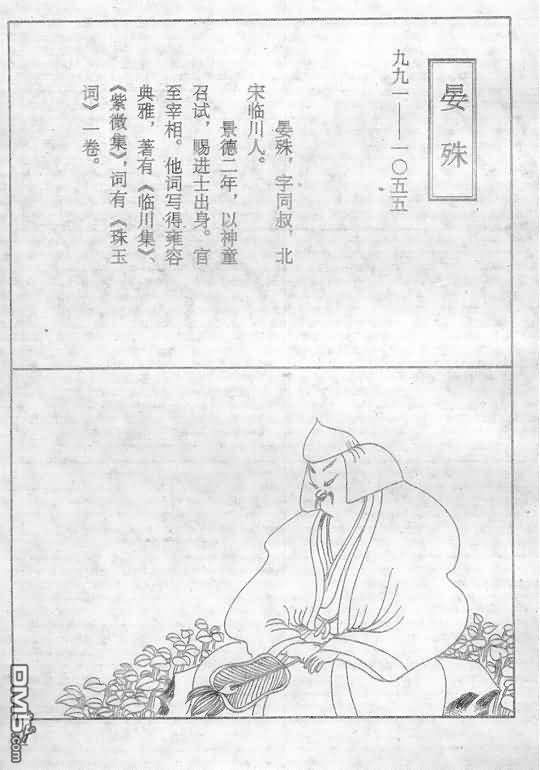 晏殊
九九一——一〇五五
晏殊，字同叔，北
宋临川人。
景德二年，以神童
召试，赐进士出身。官
至宰相。他词写得雍容
典雅，著有《临川集》、
《紫微集》，词有《珠玉
词》一卷。
DM5.com